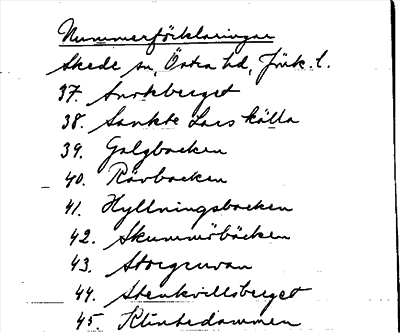 Nummerförklaringar
Skede sn, Östra hd, Jönk. l.
37.
38. Sankte Lars källa
39. Galgbacken
40. Rävbacken
41. Hyllningsbacken
42. Skummörbäcken
43. Storgruvan
44. Stenkvillsberget
45. Klintedammen